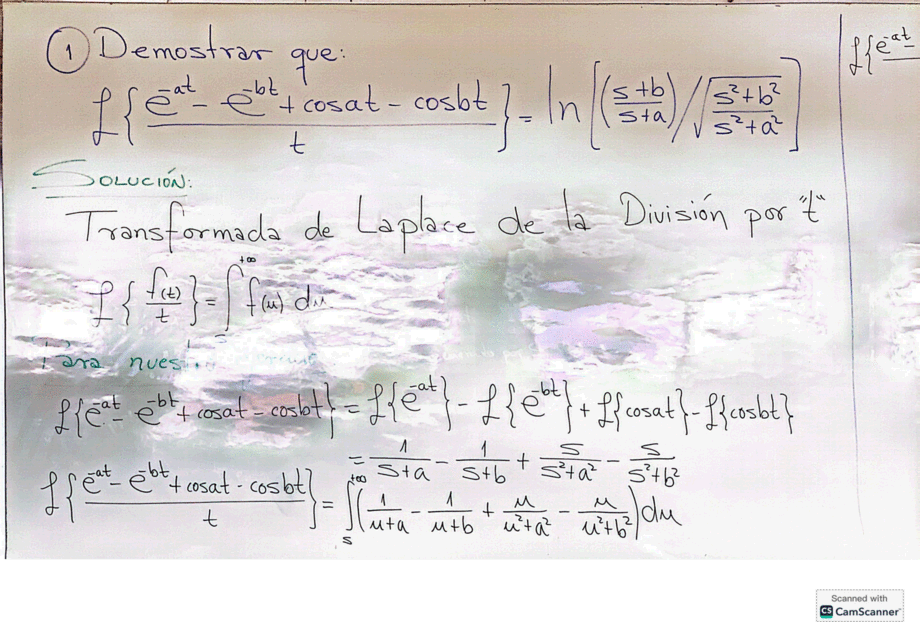 ① Demostrar que:
ℒ{(e^-at - e^-bt + cosat - cosbt)/t} = ln[((s+b)/(s+a))/√((s²+b²)/(s²+a²))]
ℒ{e^-at -
SOLUCIÓN:
Transformada de Laplace de la División por "t"
ℒ{f(t)/t} = ∫^+∞ f(u) du
Para
ℒ{e^-at - e^-bt + cosat - cosbt} = ℒ{e^-at} - ℒ{e^-bt} + ℒ{cosat} - ℒ{cosbt}
= 1/(s+a) - 1/(s+b) + s/(s²+a²) - s/(s²+b²)
ℒ{(e^-at - e^-bt + cosat - cosbt)/t} = ∫_s^+∞ (1/(u+a) - 1/(u+b) + u/(u²+a²) - u/(u²+b²)) du
Scanned with
CS CamScanner